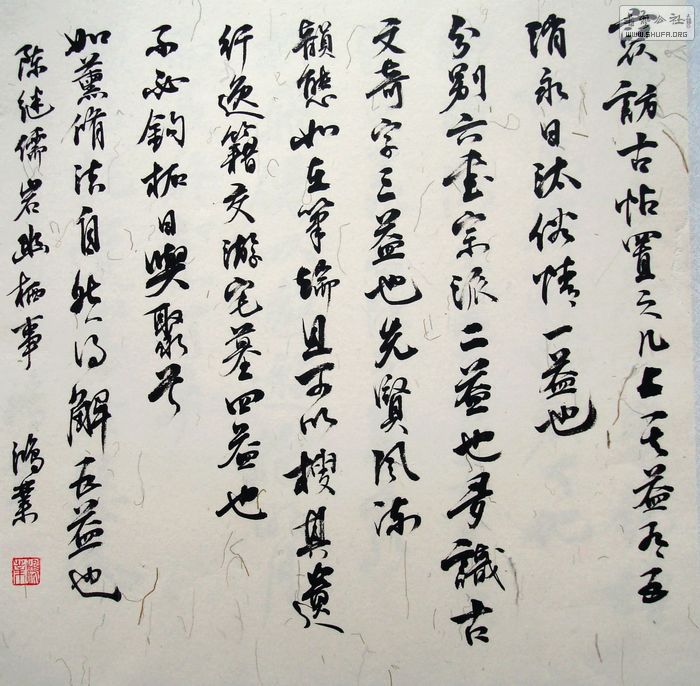 裒訪古帖置之几上其益有五
消永日汰俗情一益也
分别六書宗派二益也多識古
文奇字三益也先賢風流
韻態如在筆端且可以搜其遺
行逸籍交游宅墓四益也
不必鈎拓日與聚首
如薰脩法自然得解五益也
陳継儒岩幽栖事 鴻業
书法公社
WWW.SHUFA.ORG